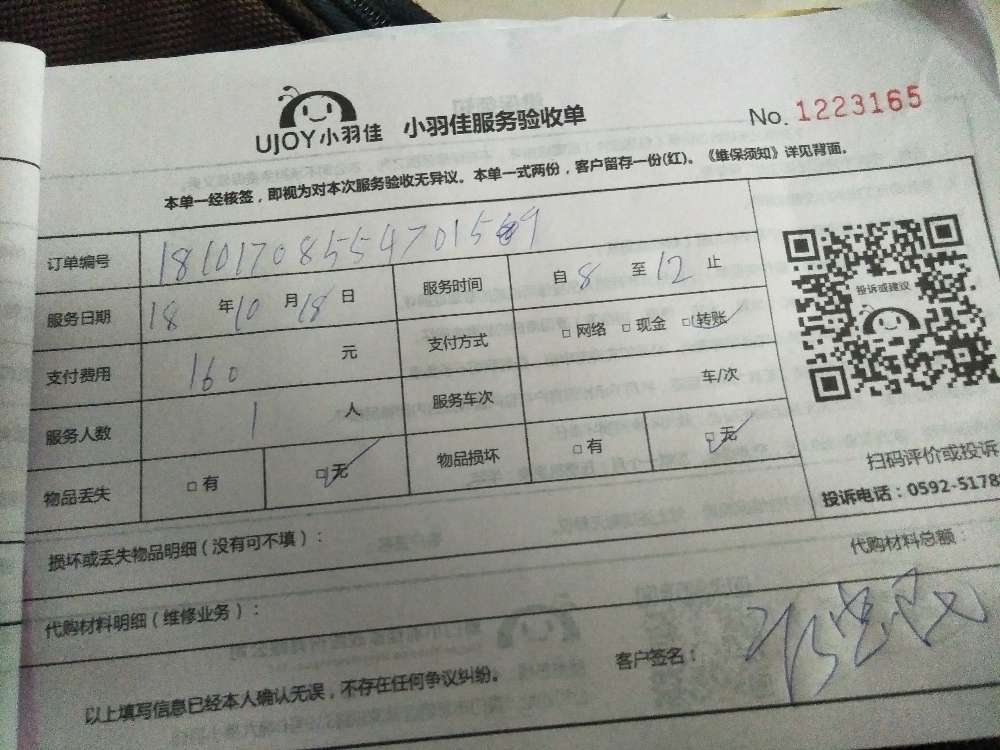 UJOY小羽佳 小羽佳服务验收单 No. 1223165
本单一经核签，即视为对本次服务验收无异议。本单一式两份，客户留存一份(红)。《维保须知》详见背面。
订单编号
服务日期 18 年 10 月 18 日 服务时间 自 8 至 12 止
支付费用 160 元 支付方式 □ 网络 □ 现金 □ 转账
服务人数 1 人 服务车次 车/次
物品丢失 □ 有 □ 无 物品损坏 □ 有 □ 无
投诉或建议
扫码评价或投诉
投诉电话：0592-5178
损坏或丢失物品明细（没有可不填）：
代购材料明细（维修业务）： 代购材料总额：
以上填写信息已经本人确认无误，不存在任何争议纠纷。 客户签名：